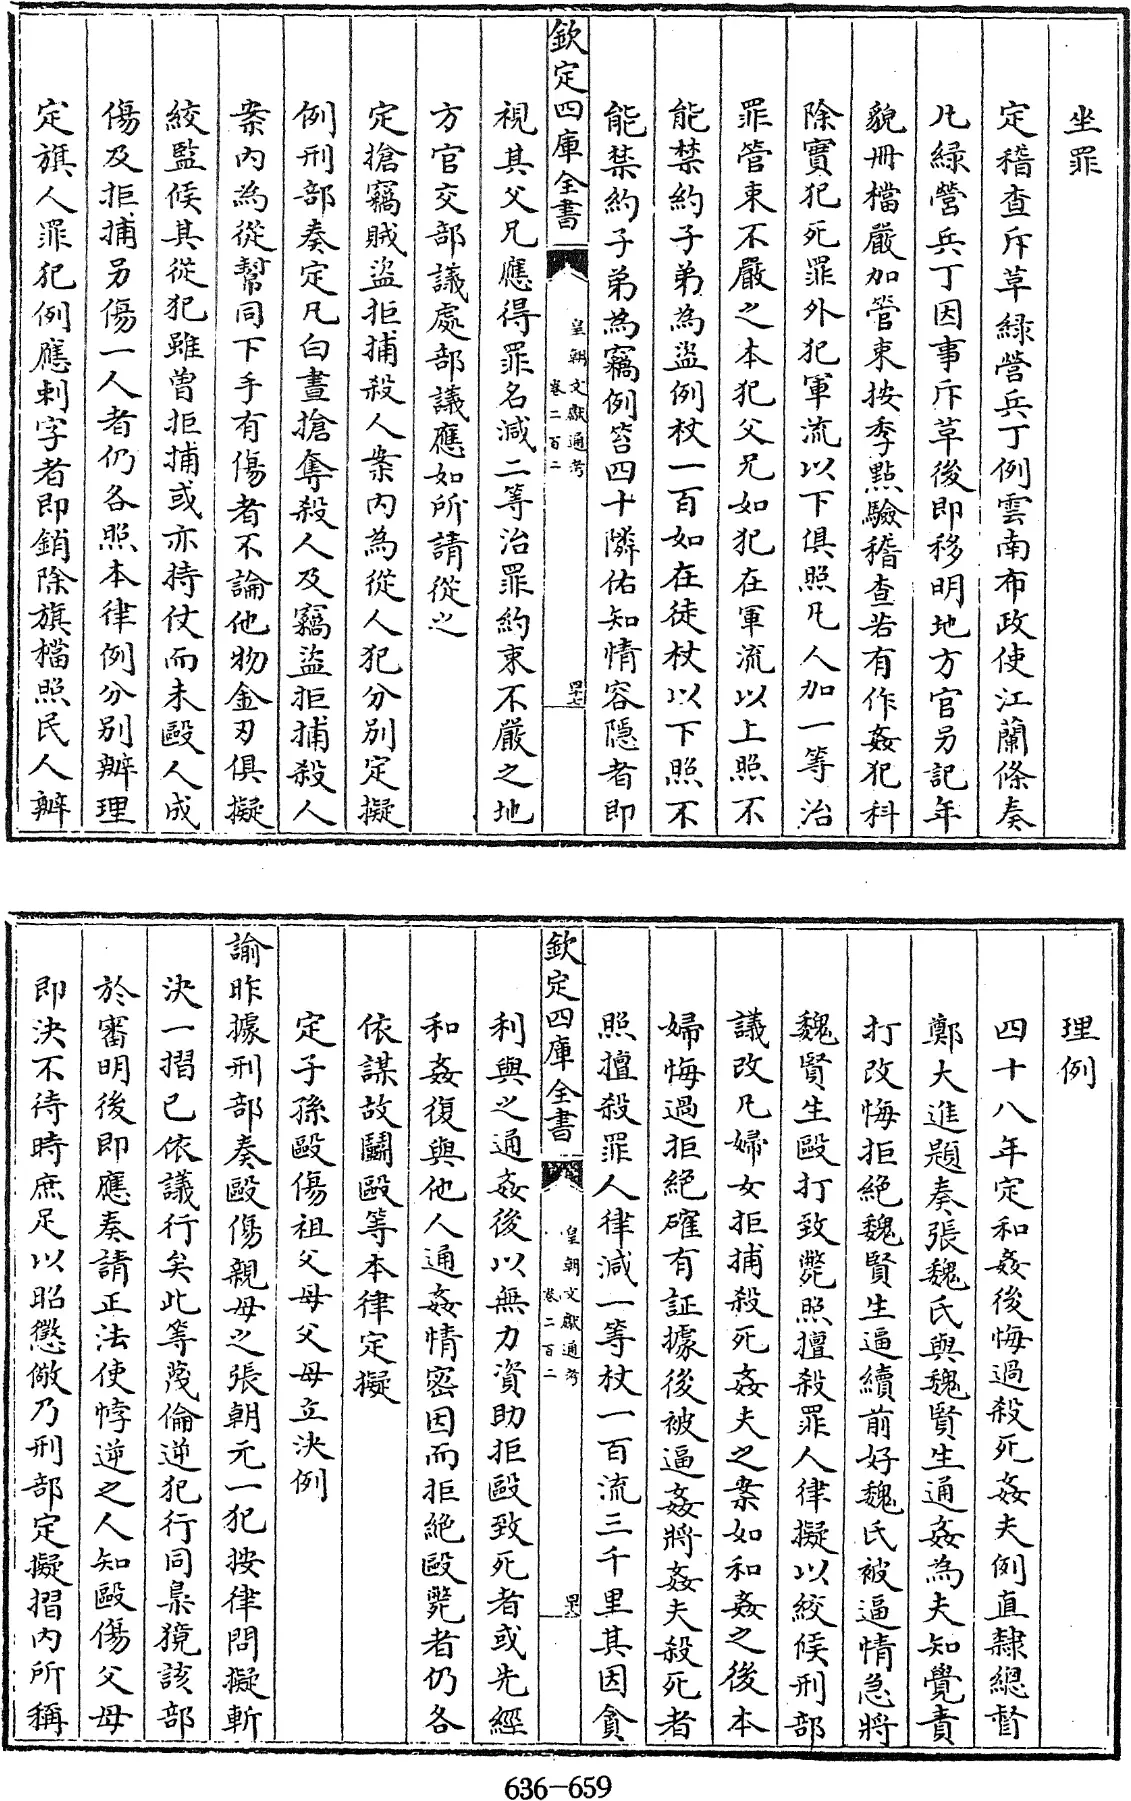 坐罪
定稽查斥革綠營兵丁例雲南布政使江蘭條奏
凡綠營兵丁因事斥革後即移明地方官另記年
貌冊檔嚴加管束按季點驗稽查若有作姦犯科
除實犯死罪外犯軍流以下俱照凡人加一等治
罪管束不嚴之本犯父兄如犯在軍流以上照不
能禁約子弟為盜例杖一百如在徒杖以下照不
能禁約子弟為竊例笞四十隣佑知情容隱者即
欽定四庫全書
皇朝文獻通考
卷二百二
四十七
視其父兄應得罪名減二等治罪約束不嚴之地
方官交部議處部議應如所請從之
定搶竊賊盜拒捕殺人案內為從人犯分別定擬
例刑部奏定凡白晝搶奪殺人及竊盜拒捕殺人
案內為從幫同下手有傷者不論他物金刃俱擬
絞監候其從犯雖曾拒捕或亦持仗而未毆人成
傷及拒捕另傷一人者仍各照本律例分別辦理
定旗人罪犯例應刺字者即銷除旗檔照民人辦
理例
四十八年定和姦後悔過殺死姦夫例直隸總督
鄭大進題奏張魏氏與魏賢生通姦為夫知覺責
打改悔拒絕魏賢生逼續前好魏氏被逼情急將
魏賢生毆打致斃照擅殺罪人律擬以絞候刑部
議改凡婦女拒捕殺死姦夫之案如和姦之後本
婦悔過拒絕確有証據後被逼姦將姦夫殺死者
照擅殺罪人律減一等杖一百流三千里其因貪
欽定四庫全書
皇朝文獻通考
卷二百二
四十八
利與之通姦後以無力資助拒毆致死者或先經
和姦復與他人通姦情密因而拒絕毆斃者仍各
依謀故鬬毆等本律定擬
定子孫毆傷祖父母父母立決例
諭昨據刑部奏毆傷親母之張朝元一犯按律問擬斬
決一摺已依議行矣此等蔑倫逆犯行同梟獍該部
於審明後即應奏請正法使悖逆之人知毆傷父母
即決不待時庶足以昭懲儆乃刑部定擬摺內所稱
636-659